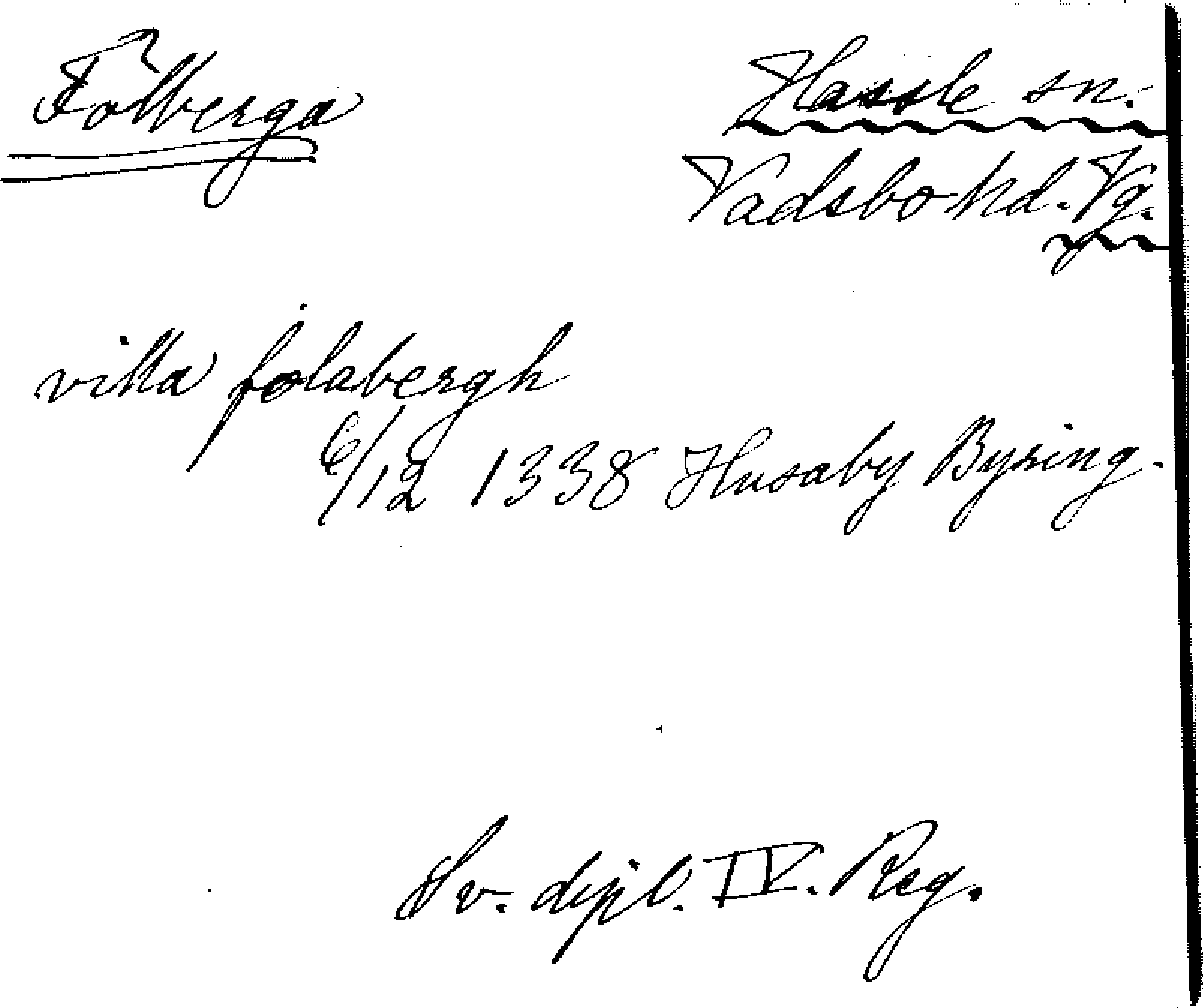 Folberga
Hassle sn.
Vadsbo hd. Vg.
villa folabergh
6/12 1338 Husaby Bysing.
Sv. dipl. IV. Reg.